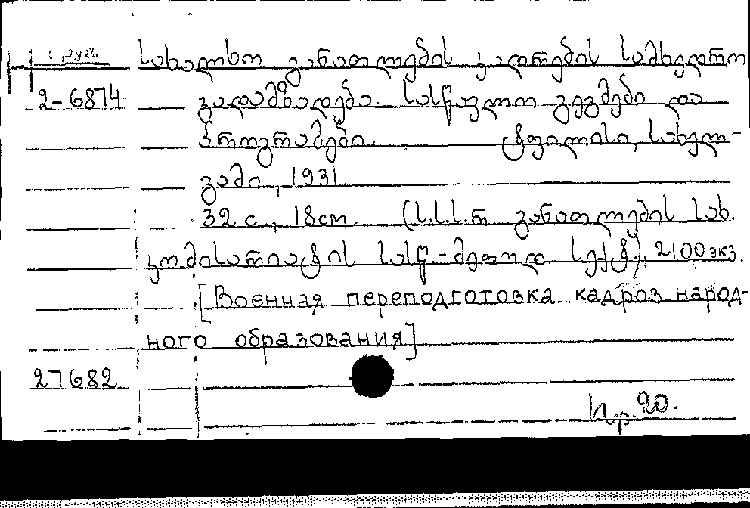 სახალხო განათლების კადრების სამხედრო
2-6874 გადამზადება. სასწავლო გეგმები და
პროგრამები. ტფილისი, სახელ-
გამი, 1931
32 с., 18 cm. (ს.ს.ს.რ. განათლების სახ.
კომისარიატის სასწ-მეთოდ სექტ.) 2100 экз.
[Военная переподготовка кадров народ-
ного образования]
27682
Кр. 20.